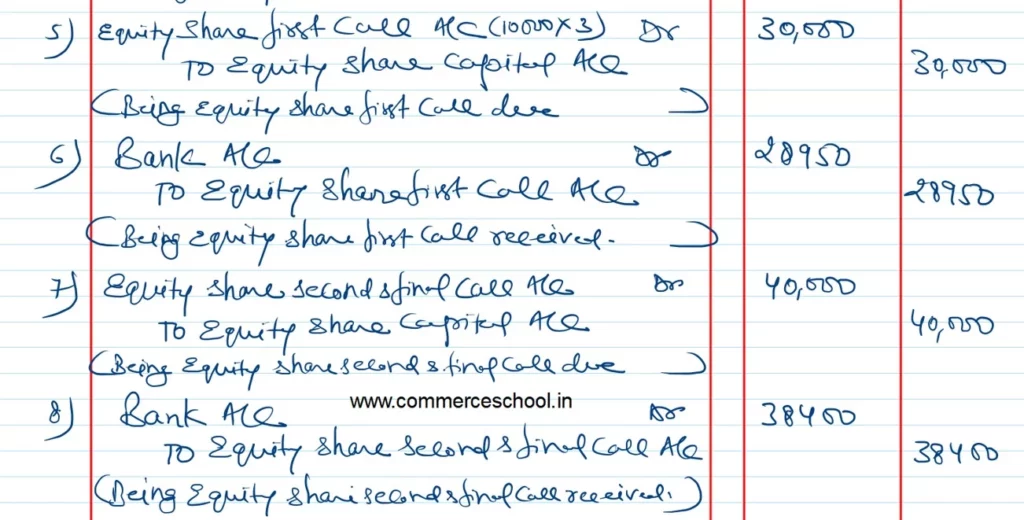 5) Equity Share first Call A/C (10000×3) Dr 30,000
To Equity Share Capital A/C 30,000
(Being Equity share first Call due)
6) Bank A/C Dr 28950
To Equity Share first Call A/C 28950
(Being Equity Share first Call received.)
7) Equity share second & final Call A/C Dr 40,000
To Equity Share Capital A/C 40,000
(Being Equity share second & final Call due)
www.commerceschool.in
8) Bank A/C Dr 38400
To Equity Share Second & final Call A/C 38400
(Being Equity share second & final Call received.)